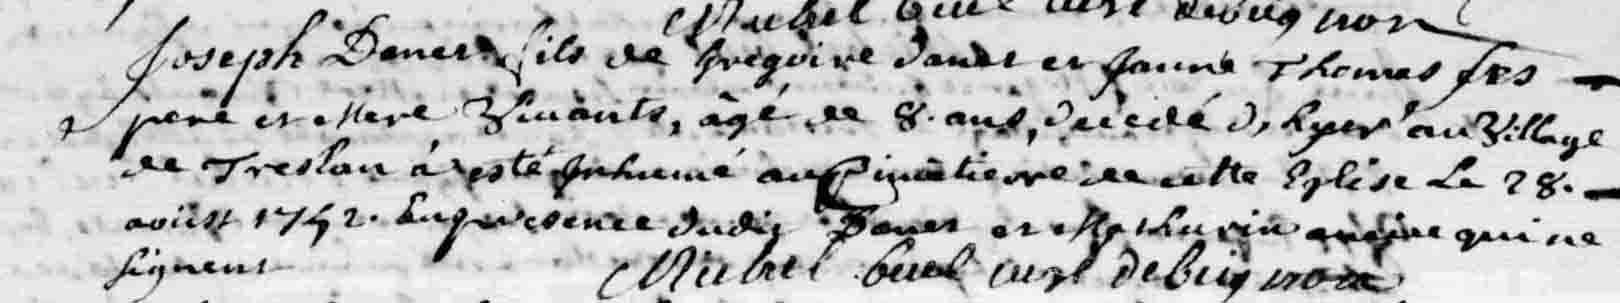 Joseph Daner fils de Gregoire daner et Janne Thomas ses
pere et Mere Vivants, agé de 8. ans, decedé d'hyer au Village
de Treslan à esté Inhumé au Cimetierre de cette Eglise Le 28.
aoust 1742. En presence dudit Daner et Mathurin qui ne
signent Michel curé de